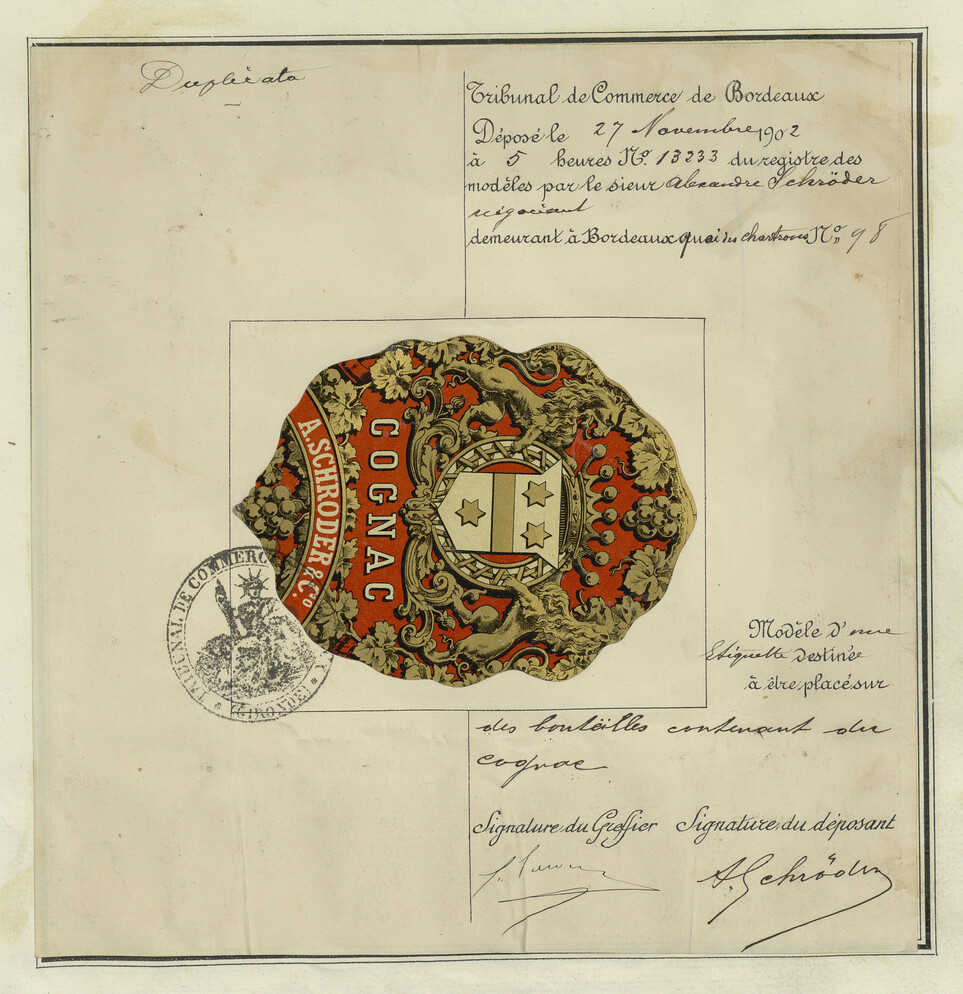 Duplicata
Tribunal de Commerce de Bordeaux
Déposé le 27 Novembre 1902
à 5 heures No. 13233 du registre des
modèles par le sieur Alexandre Schröder
négociant
demeurant à Bordeaux quai des chartrons No 98
COGNAC
A. SCHRODER & Co.
TRIBUNAL DE COMMERCE
(GIRONDE)
Modèle d'une
Etiquette destinée
à être placé sur
des bouteilles contenant du
cognac
Signature du Greffier Signature du déposant
A. Schröder